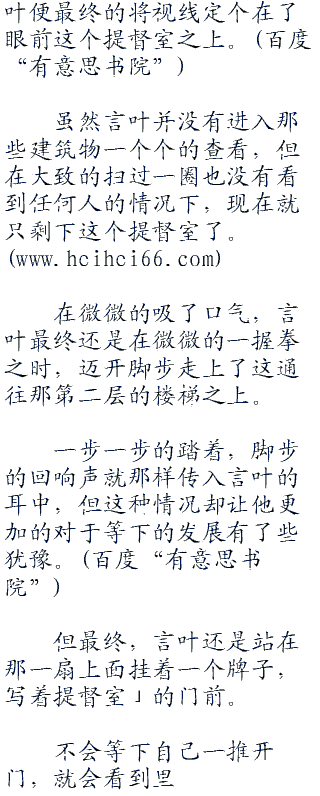 叶便最终的将视线定个在了
眼前这个提督室之上。(百度
“有意思书院”)
虽然言叶并没有进入那
些建筑物一个个的查看，但
在大致的扫过一圈也没有看
到任何人的情况下，现在就
只剩下这个提督室了。
(www.hcihci66.com)
在微微的吸了口气，言
叶最终还是在微微的一握拳
之时，迈开脚步走上了这通
往那第二层的楼梯之上。
一步一步的踏着，脚步
的回响声就那样传入言叶的
耳中，但这种情况却让他更
加的对于等下的发展有了些
犹豫。(百度“有意思书
院”)
但最终，言叶还是站在
那一扇上面挂着一个牌子，
写着提督室」的门前。
不会等下自己一推开
门，就会看到里